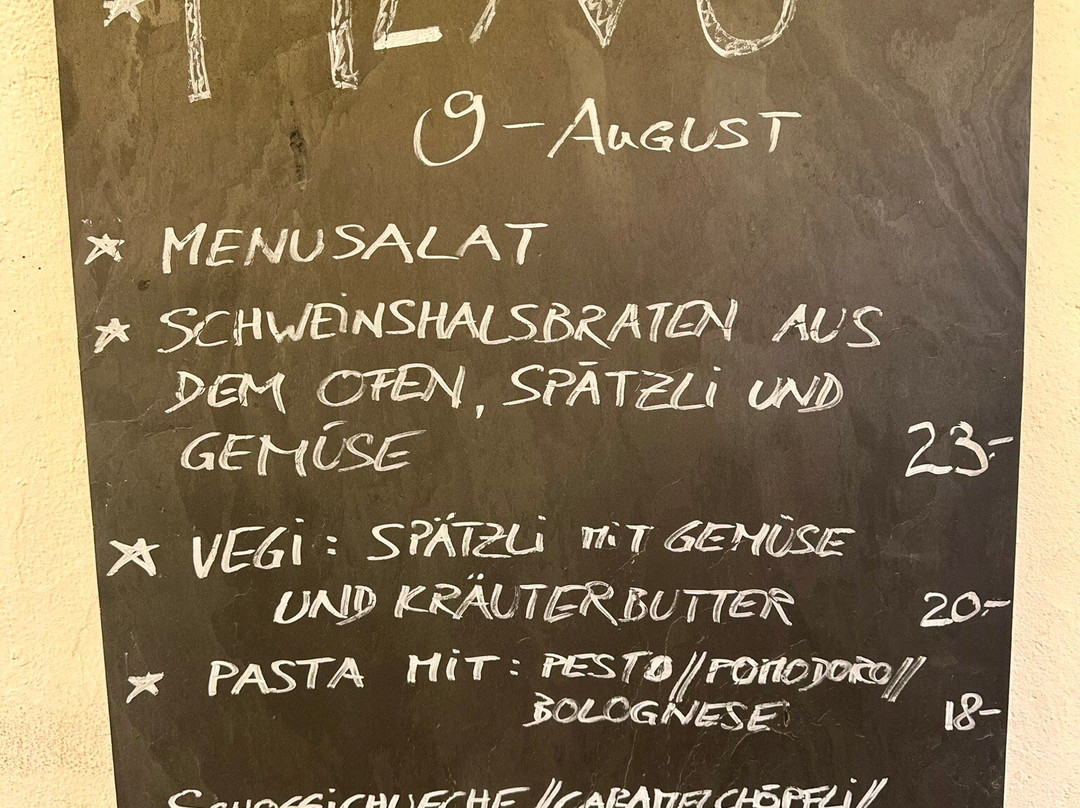 MENU
9-AUGUST
MENUSALAT
SCHWEINSHALSBRATEN AUS
DEM OFEN, SPÄTZLI UND
GEMÜSE 23-
VEGI: SPÄTZLI MIT GEMÜSE
UND KRÄUTERBUTTER 20-
PASTA MIT: PESTO//POMODORO//
BOLOGNESE 18-
SCHOGGICHUECHE //CARAMELCHÖPFLI//